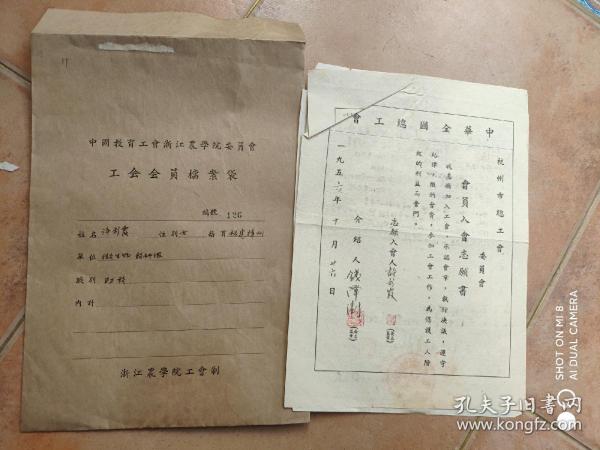 中國教育工會浙江農學院委員會
工会会員檔案袋
編號 126
姓名 许彩霞 性別 女 籍貫 福建福州
單位
級別 助教
內計
浙江農學院工會制
中華全國總工會
杭州市總工會
委員會
會員入會志願書
我志願加入工會，承認會章，執行決議，遵守
紀律，繳納會費，參加工會工作，為保護工人階
級的利益而奮鬥。
志願入會人
介紹人 錢澤澍
一九五六年十月廿六日
SHOT ON MI 8
AI DUAL CAMERA
孔夫子旧书网
www.kongfz.com